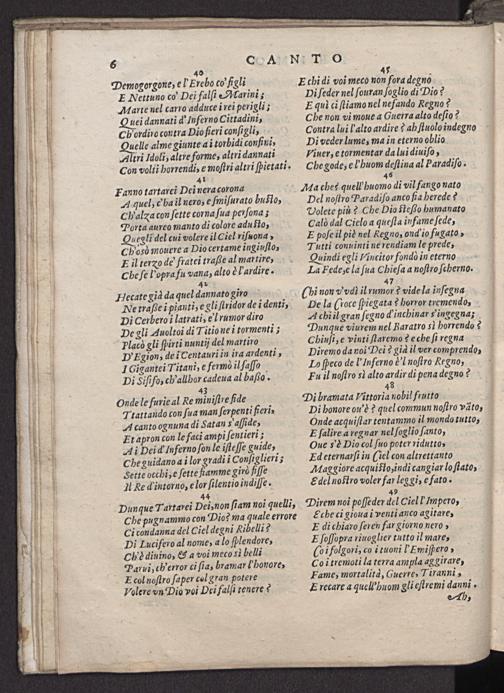 6
CANTO
40
Demogorgone, e l'Erebo co' figli
E Nettuno co' Dei falsi e Marini;
Marte nel carro adduce i rei perigli;
Quei dannati d'Inferno Cittadini,
Ch'ordire contra Dio fieri consigli,
Quelle alme giunte a i torbidi confini,
Altri Idoli, altre forme, altri dannati
Con volti horrendi, e mostri altri spietati.
41
Fanno tartarei Dei nera corona
A quel, c'ha il nero, e smisurato busto,
Ch'alza con sette corna sua persona;
Porta aureo manto di colore adusto,
Quegli del cui volere il Ciel risuona,
Ch'osò mouere a Dio certame ingiusto,
E il terzo de' fratei traße al martire,
Che se l'opra fu vana, alto è l'ardire.
42
Hecate già da quel dannato giro
Ne traße i pianti, e gli stridor de i denti,
Di Cerbero i latrati, e'l rumor diro
De gli Auoltoi di Titio ne i tormenti;
Placò gli spirti nuntij del martiro
D'Egion, de i Centauri in ira ardenti,
I Gigantei Titani, e fermò il saßo
Di Sisifo, ch'allhor cadeua al baßo.
43
Onde le furie al Re ministre fide
Trattando con sua man serpenti fieri,
A canto ognuna di Satan s'asside,
Et apron con le faci ampi sentieri;
A i Dei d'Inferno son le istesse guide,
Che guidano a i lor gradi i Consiglieri;
Sette occhi, e sette fiamme girò fisse
Il Re d'intorno, e lor silentio indisse.
44
Dunque Tartarei Dei, non siam noi quelli,
Che pugnammo con Dio? ma quale errore
Ci condanna del Ciel degni Ribelli?
Di Lucifero al nome, a lo splendore,
Ch'è diuino, & a voi meco sì belli
Parui, ch'error ci sia, bramar l'honore,
E col nostro saper col gran potere
Volere vn Dio voi Dei falsi tenere?
45
E chi di voi meco non fora degno
Di seder nel souran soglio di Dio?
E quì ci stiamo nel nefando Regno?
Che non vi moue a Guerra alto desio?
Contra lui l'alto ardire? ah stuolo indegno
Di veder lume, ma in eterno oblio
Viuer, e tormentar da lui diuiso,
Che gode, e l'huom destina al Paradiso.
46
Ma che? quell'huomo di vil fango nato
Del nostro Paradiso anco fia herede?
Volete più? Che Dio stesso humanato
Calò dal Cielo a questa infame sede,
E pose il piè nel Regno, ond'io fugato,
Tutti conuinti ne rendiam le prede,
Quindi egli Vincitor fondò in eterno
La Fede, e la sua Chiesa a nostro scherno.
47
Chi non v'vdì il rumor? vide la insegna
De la Croce spiegata? horror tremendo,
A chi il gran segno d'inchinar s'ingegna;
Dunque viurem nel Baratro sì horrendo?
Chiusi, e vinti staremo? e che si regna
Diremo da noi Dei? già il ver comprendo,
Lo speco de l'Inferno è'l nostro Regno,
Fu il nostro sì alto ardir di pena degno?
48
Di bramata Vittoria nobil frutto
Di honore ou'è? quel commun nostro vãto,
Onde acquistar tentammo il mondo tutto,
E salire a regnar nel soglio santo,
Oue s'è Dio col suo poter ridutto,
Ed eternarsi in Ciel con altrettanto
Maggiore acquisto, indi cangiar lo stato,
E del nostro voler far leggi, e fato.
49
Direm noi posseder del Ciel l'Impero,
E che ci gioua i venti anco agitare,
E di chiaro seren far giorno nero,
E sossopra riuoglier tutto il mare,
Co i folgori, co i tuoni l'Emispero,
Co i tremoti la terra ampla aggirare,
Fame, mortalità, Guerre, Tiranni,
E recare a quell'huom gli estremi danni.
Ah,